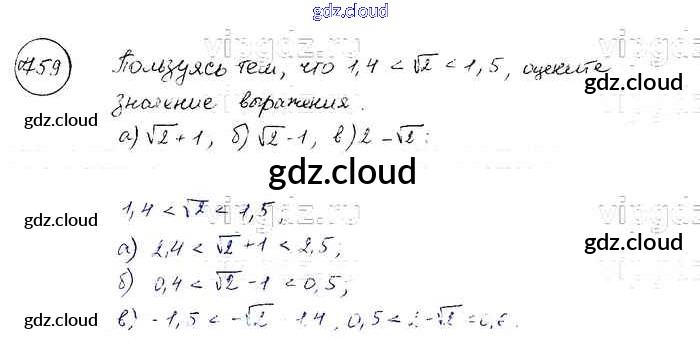 gdz.cloud
759 Пользуясь тем, что 1,4 < √2 < 1,5, оцените
значение выражения.
а) √2 + 1, б) √2 - 1, в) 2 - √2:
gdz.cloud
gdz.cloud
gdz.cloud
1,4 < √2 < 1,5;
gdz.cloud
gdz.cloud
а) 2,4 < √2 + 1 < 2,5;
б) 0,4 < √2 - 1 < 0,5;
в) -1,5 < -√2 -1,4, 0,5 < 2-√2
gdz.cloud
gdz.cloud